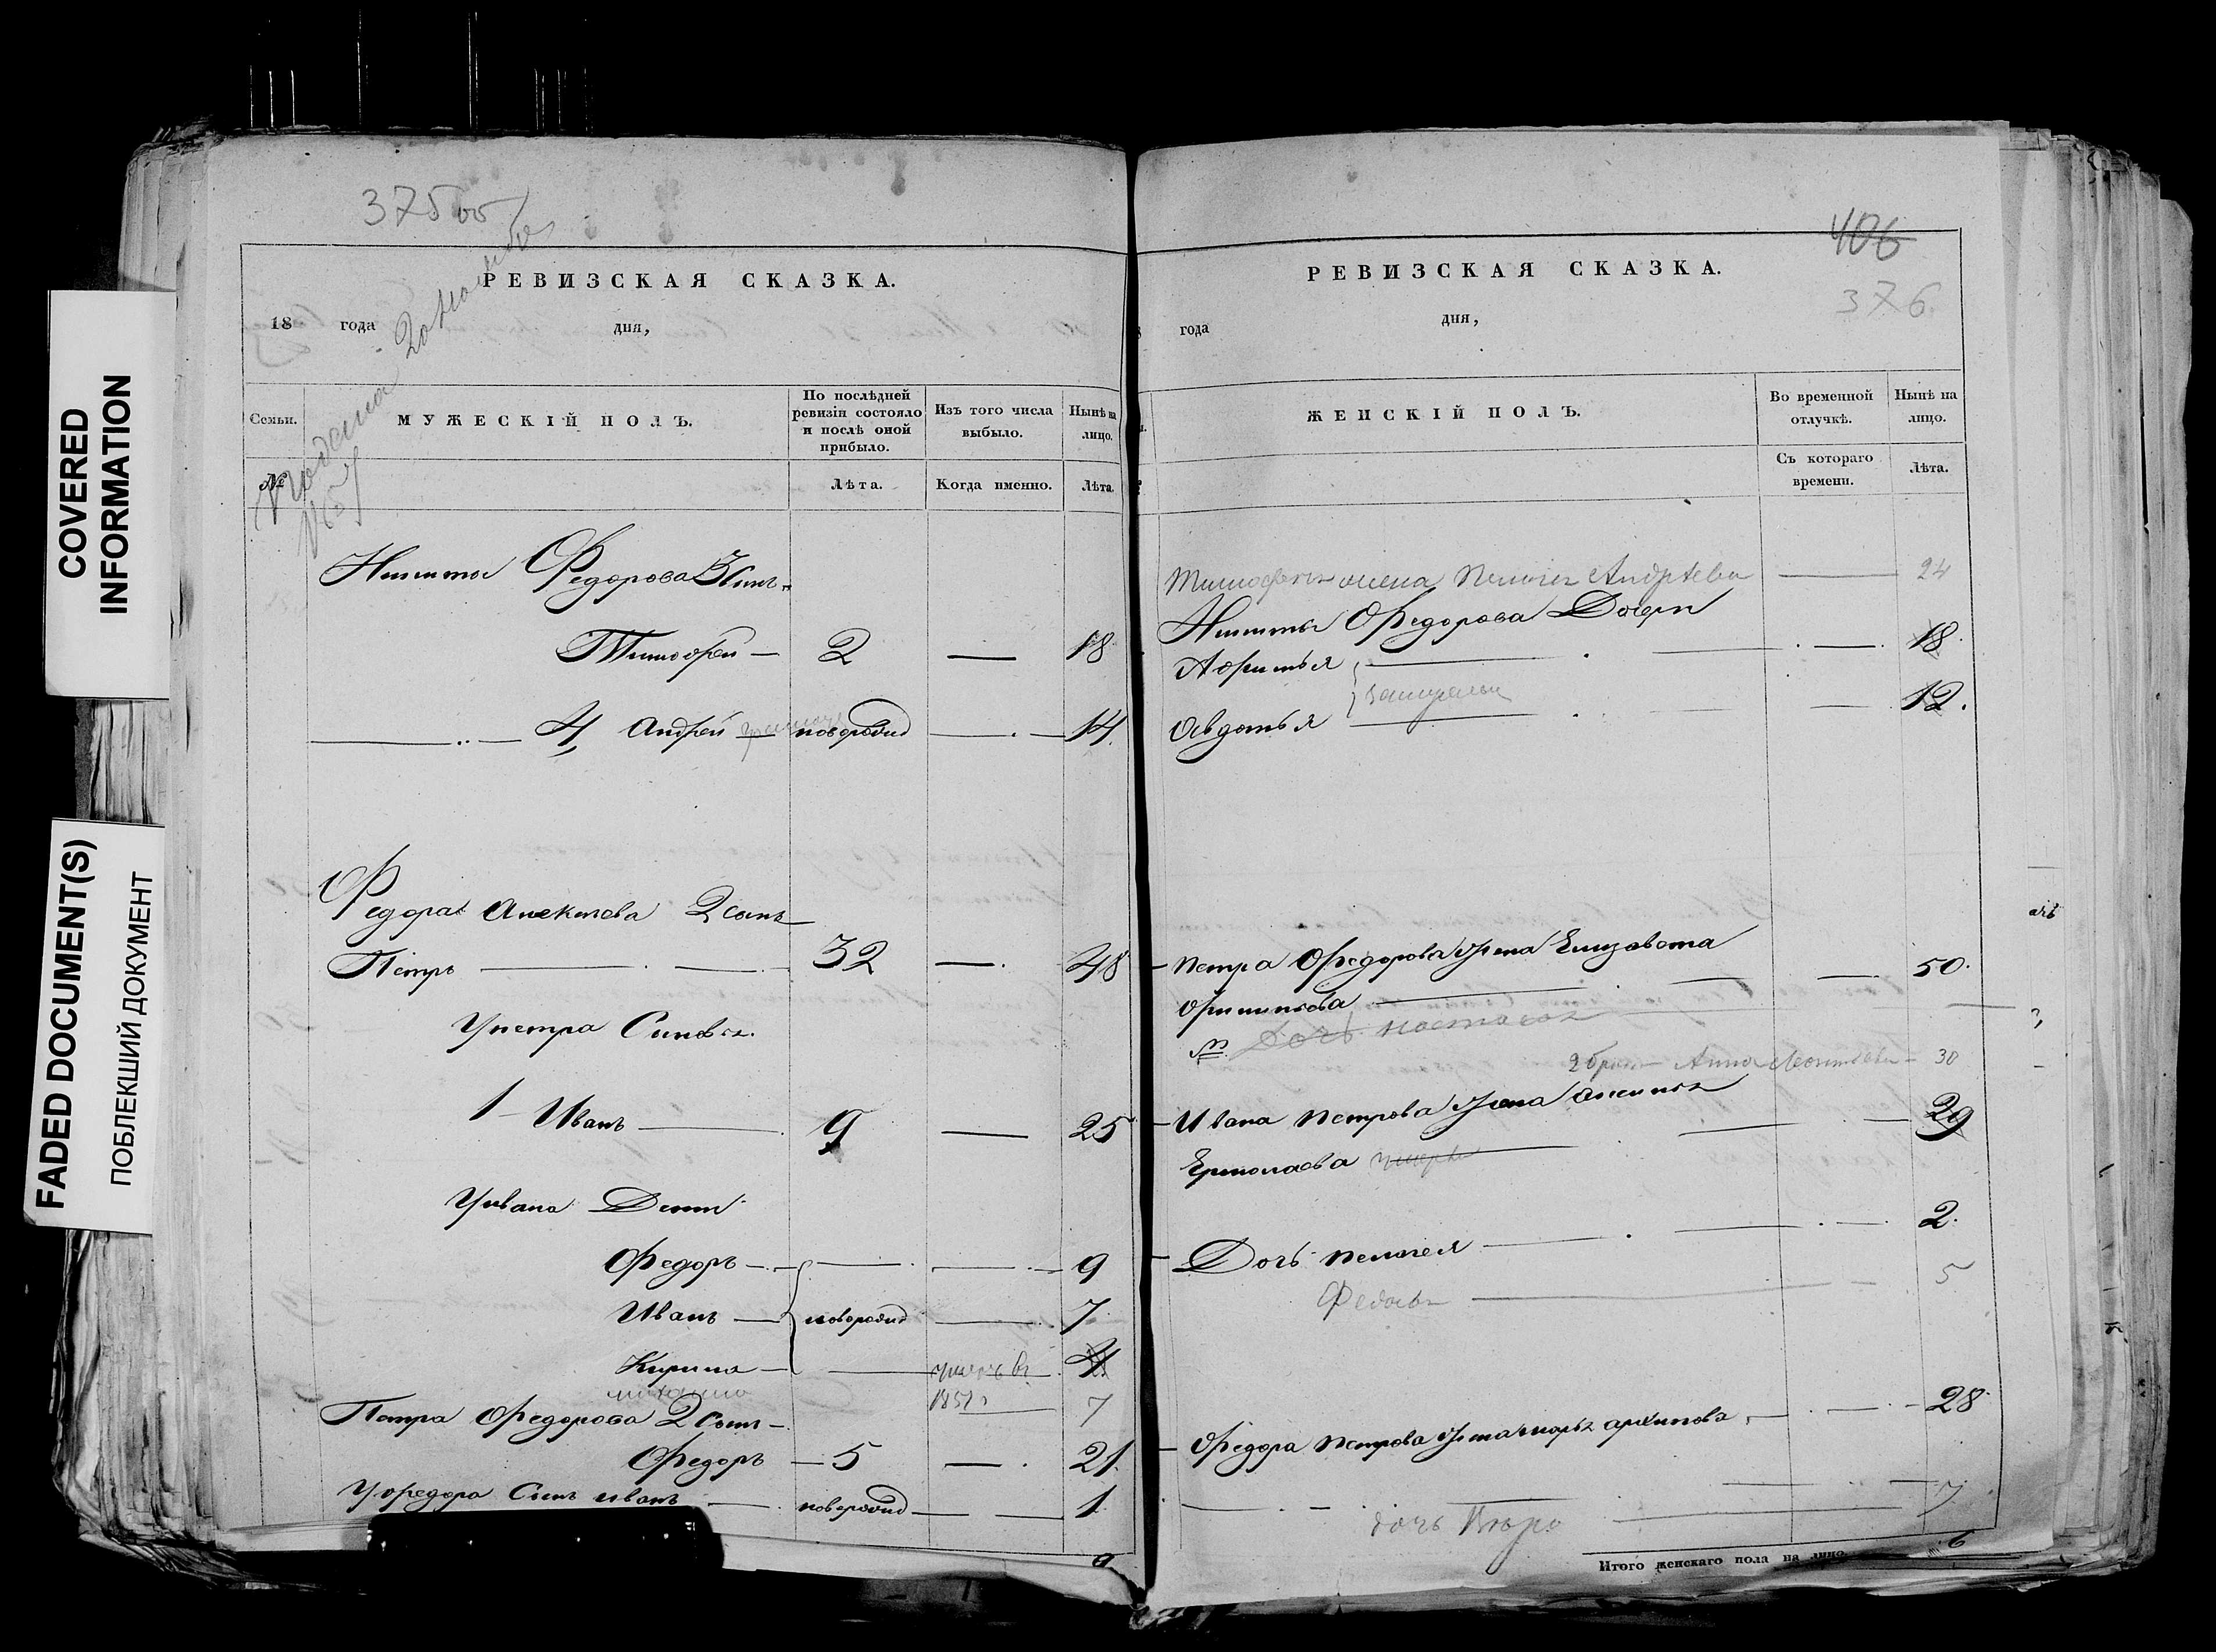 COVERED
INFORMATION
FADED DOCUMENT(S)
ПОБЛЕКШИЙ ДОКУМЕНТ
375 об
РЕВИЗСКАЯ СКАЗКА.
18 года дня,
Семьи. МУЖЕСКІЙ ПОЛЪ. По послѣдней ревизіи состояло и послѣ оной прибыло. Изъ того числа выбыло. Нынѣ на лицо.
№ Лѣта. Когда именно. Лѣта.
Никиты Федорова 3 сынъ
Тимофей — 2 — 18
4 Андрей новорожд — 14
Федора Алексѣева 2 сынъ
Петръ — 32 — 48
У петра Сыновья.
1 Иванъ — 9 — 25
У ивана Дети
Федоръ — 9
Иванъ — новорожд — 7
Кирила — 4
1851 7
Петра Федорова 2 сынъ
Федоръ — 5 — 21.
У федора Сынъ иванъ — новорожд — 1
406
РЕВИЗСКАЯ СКАЗКА.
376.
года дня,
ЖЕНСКІЙ ПОЛЪ. Во временной отлучкѣ. Нынѣ на лицо.
Съ котораго времени. Лѣта.
Тимофея жена Пелагея Андреева — 24
Никиты Федорова Дочери
Афимья — 18.
Авдотья — 12.
Петра Федорова жена Елизавета
Филипова — 50.
Дочь настасья
2 брак Анна Леонтьева — 30
Ивана Петрова жена аксинья
Ермолаева — 29
Дочь пелагея — 2.
5
Федора Петрова жена марья архипова — 28
дочь — 7
Итого женскаго пола на лицо 6